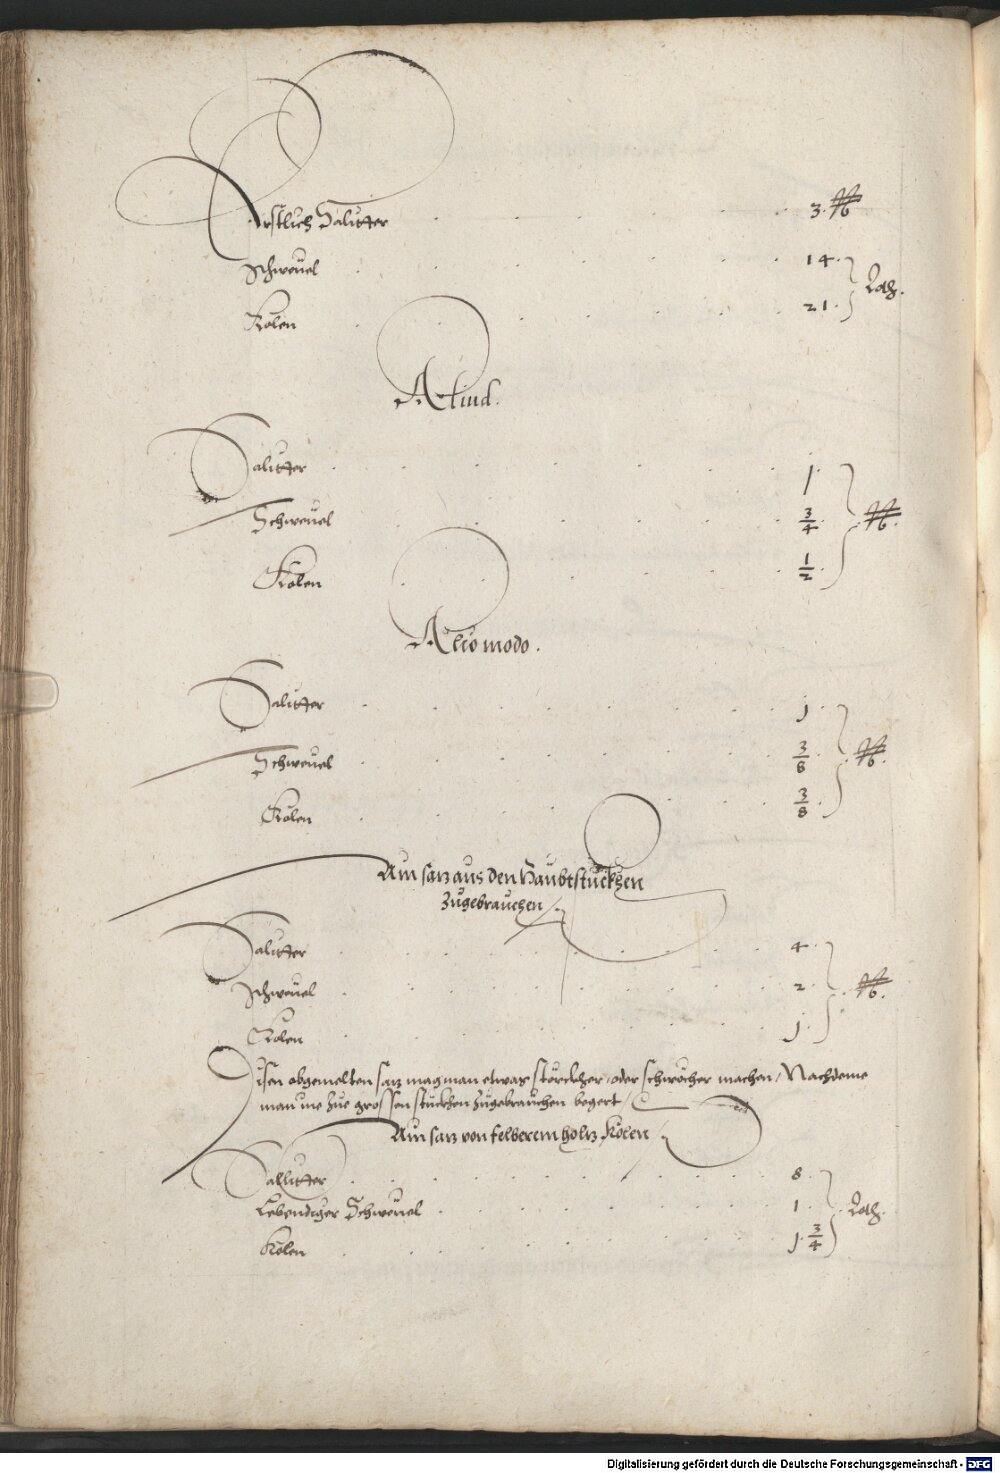 Erstlich Salitter . . . . . . . 3. ℔
Schweuel . . . . . . . 14.
Lot.
Kolen . . . . . . . 21.
Aliud.
Salitter . . . . . . . 1
Schweuel . . . . . . . 3/4. ℔.
Kolen . . . . . . . 1/2.
Alio modo.
Salitter . . . . . . . 1.
Schweuel . . . . . . . 3/8. ℔.
Kolen . . . . . . . 3/8.
Ain saz aus den Haubtstuckhen
Zugebrauchen.
Salitter . . . . . . . 4.
Schweuel . . . . . . . 2. ℔.
Kolen . . . . . . . 1.
Disen obgemelten saz mag man etwas störckher, oder schwöcher machen, Nachdeme
man ine zue grossen stuckhen Zugebrauchen begert,
Ain saz von felberem holtz Kolen.
Sallitter . . . . . . . 8.
Lebendiger Schweuel . . . . . . . 1. Lot.
Kolen . . . . . . . 1. 3/4
Digitalisierung gefördert durch die Deutsche Forschungsgemeinschaft - DFG